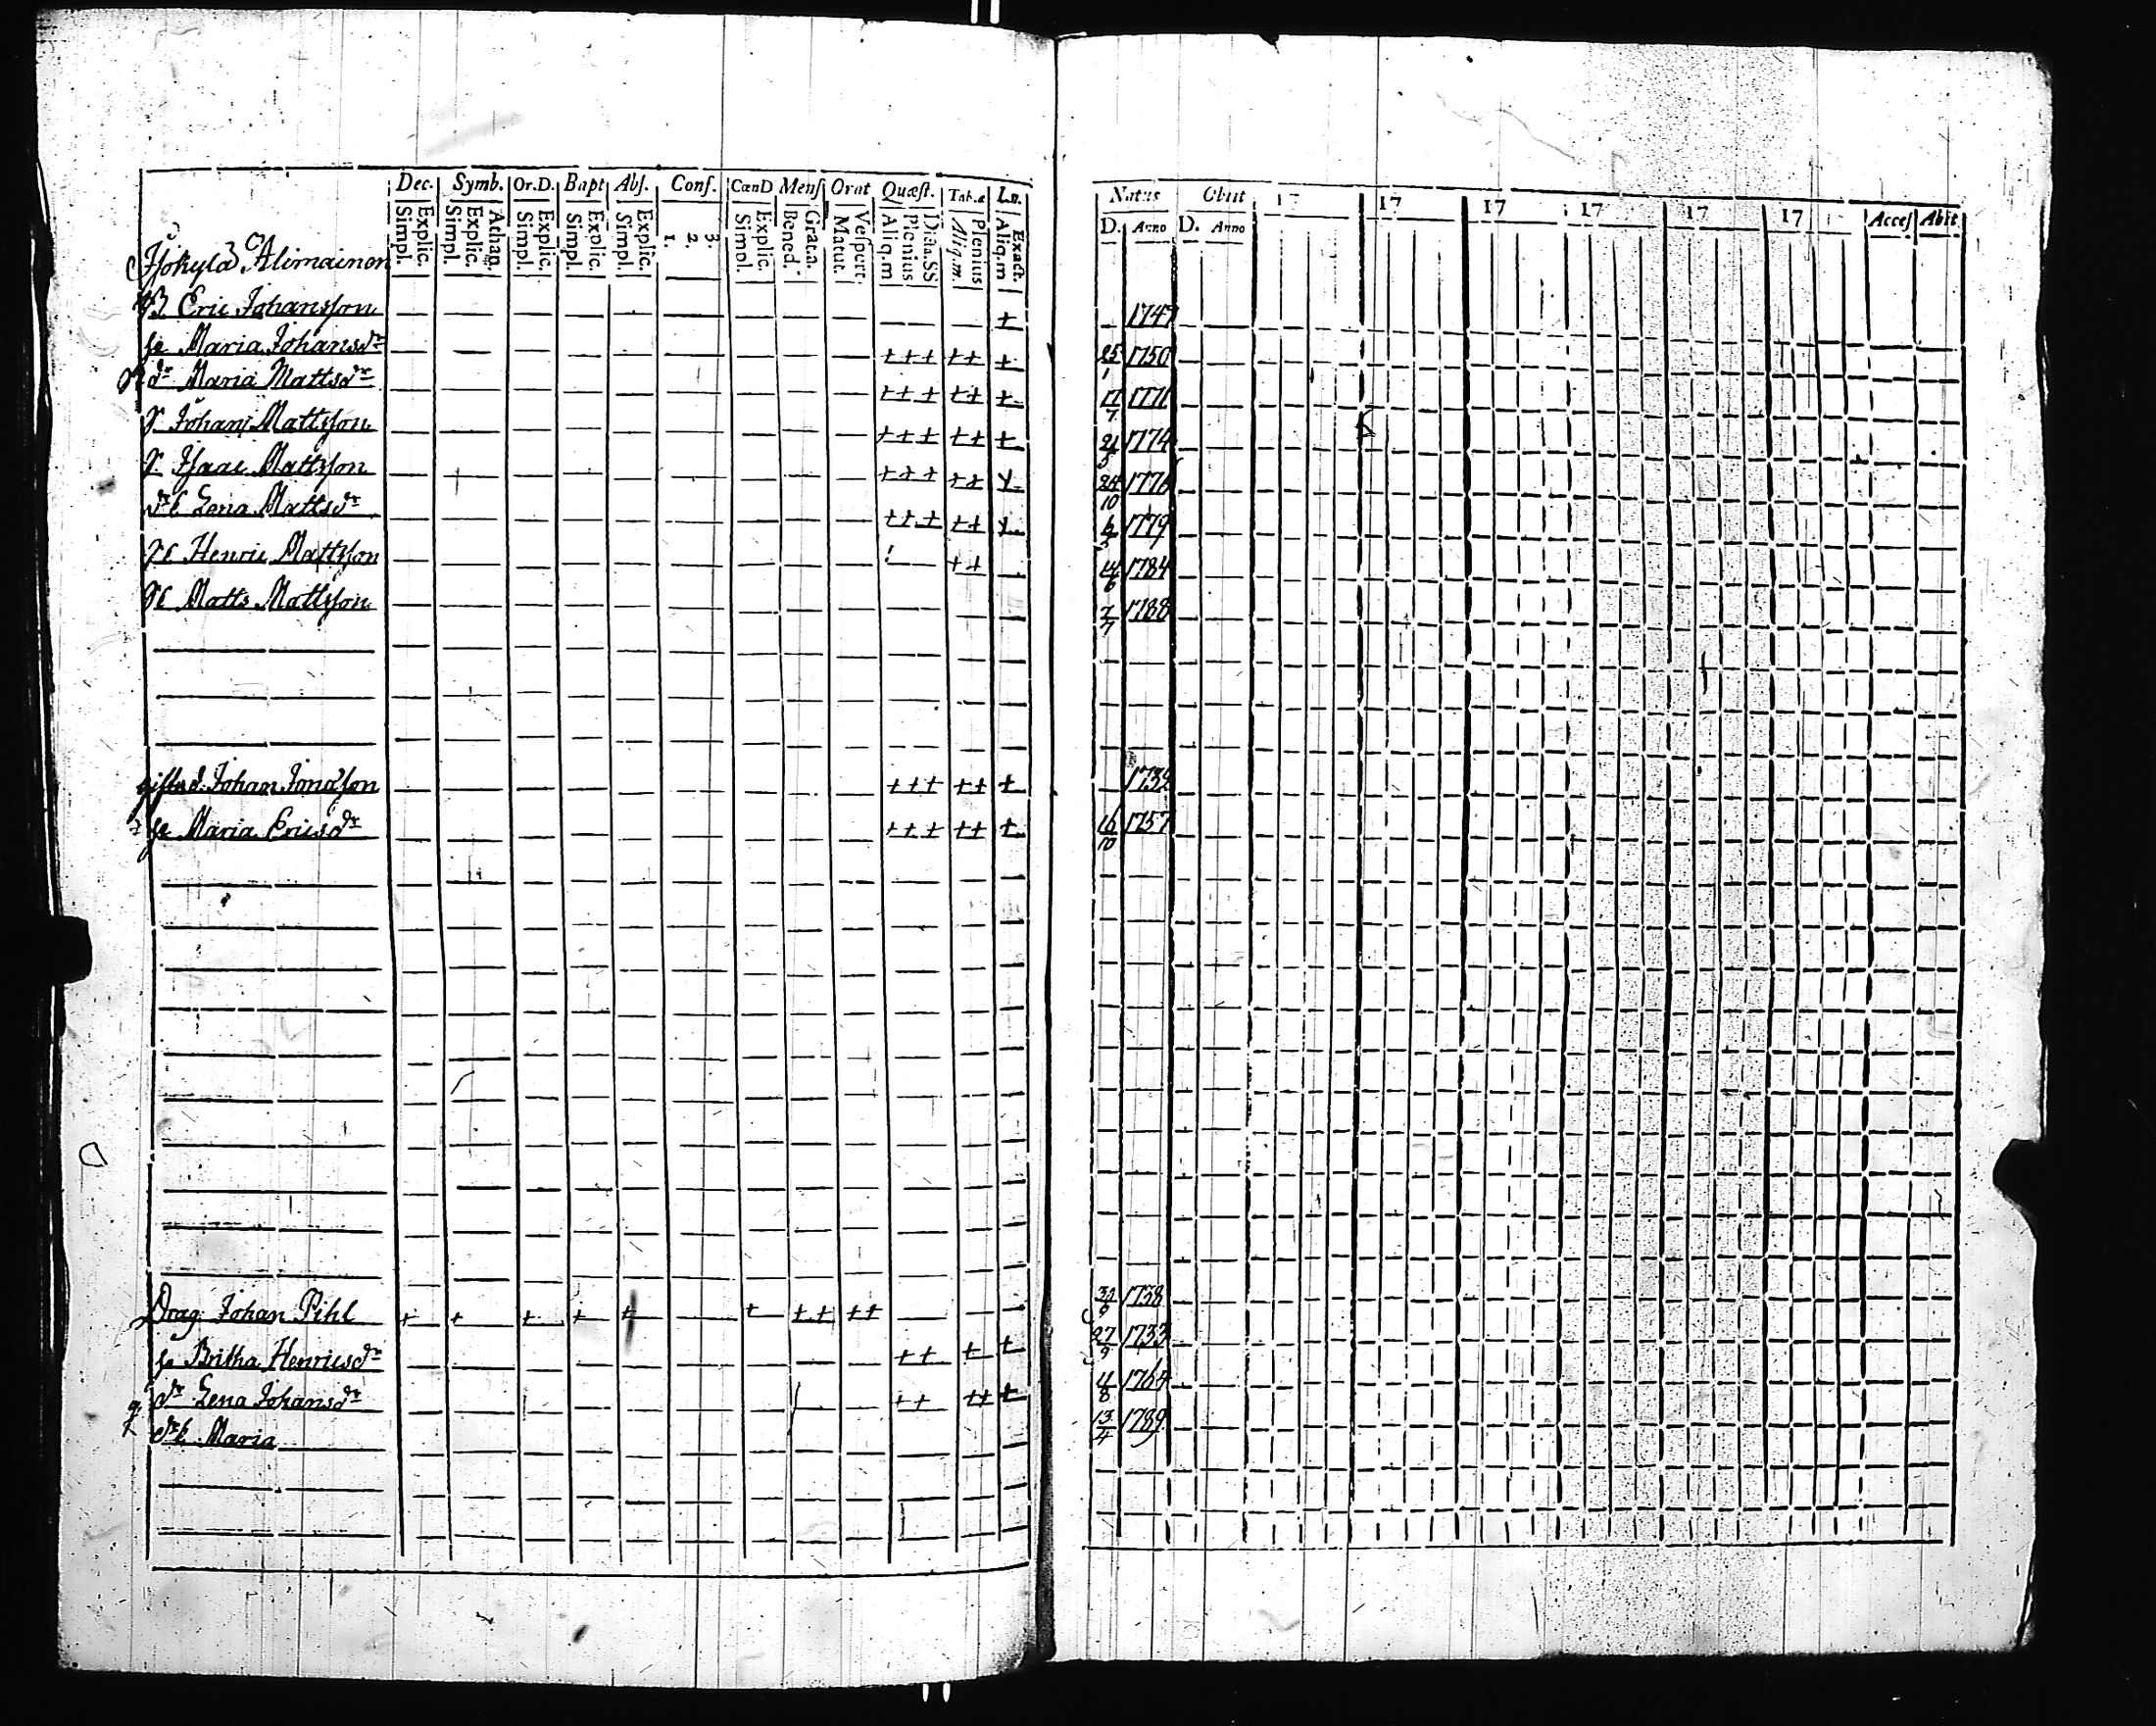 Dec. Symb. Or.D. Bapt Abs. Conf. CœnD Mens Orat Quæst. Tab.æ L.n.
Simpl. Explic. Simpl. Explic. Athan. Simpl. Explic. Simpl. Explic. Simpl. Explic. 1. 2. 3. Simpl. Explic. Bened. Matut. Vespert. Aliq.m Plenius Aliq.m Plenius Aliq.m Exact.
Natus Obiit 17 17 17 17 17 17 Acces Abiit
D. Anno D. Anno
Isokylä Alimainen
Eric Johansson + 1747
Maria Johansdr +++ ++ + 25/1 1750
dr Maria Mattsdr +++ ++ + 17/7 1771
S. Johan Mattsson +++ ++ + 1774
S. Isaac Mattsson +++ ++ + 24/10 1776
Lena Mattsdr +++ ++ + 1779
Henric Mattsson ++ 14/6 1784
Matts Mattsson 7/7 1788
Johan Jonasson +++ ++ + 1732
Maria Ericsdr +++ ++ + 16/10 1757
Drag Johan Pihl + + + + + + ++ ++ 30/9 1738
Britha Henricsdr ++ + + 27/9 1733
dr Lena Johansdr ++ ++ + 1764
Maria 13/4 1789